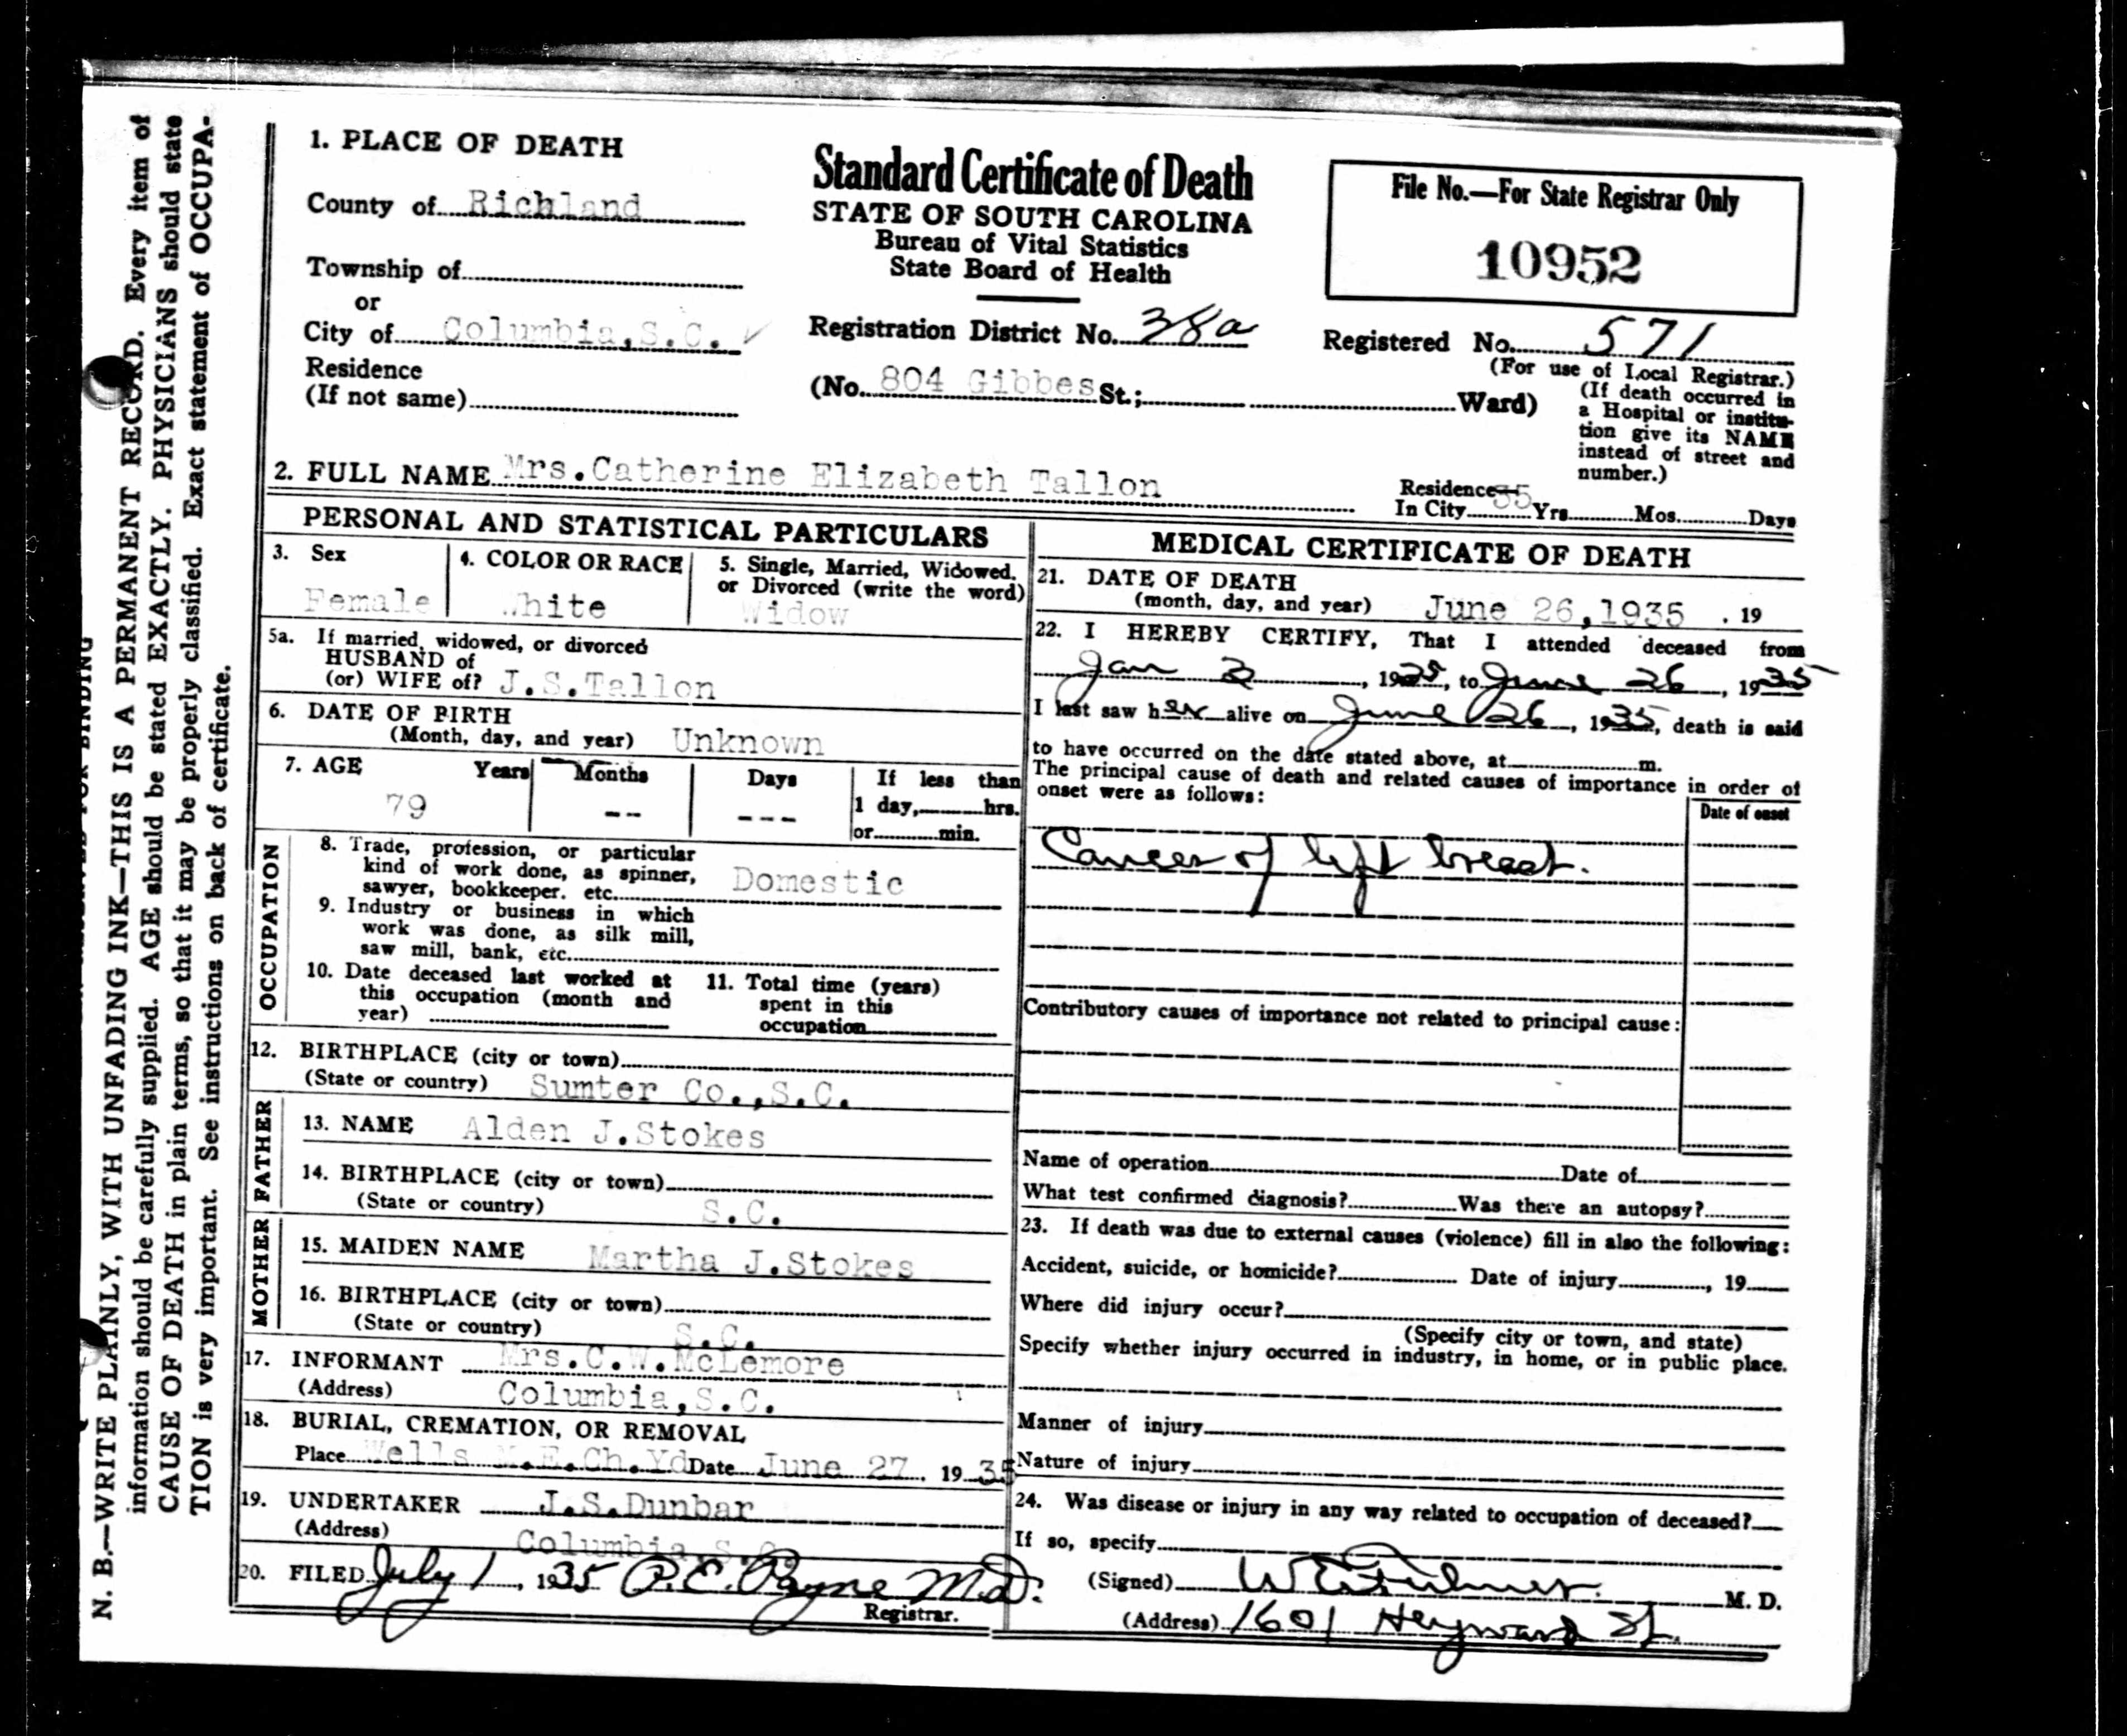 N. B.—WRITE PLAINLY, WITH UNFADING INK—THIS IS A PERMANENT RECORD. Every item of
information should be carefully supplied. AGE should be stated EXACTLY. PHYSICIANS should state
CAUSE OF DEATH in plain terms, so that it may be properly classified. Exact statement of OCCUPA-
TION is very important. See instructions on back of certificate.
1. PLACE OF DEATH
County of Richland
Township of
or
City of Columbia,S.C.
Residence
(If not same)
Standard Certificate of Death
STATE OF SOUTH CAROLINA
Bureau of Vital Statistics
State Board of Health
Registration District No. 38a
(No. 804 Gibbes St.; Ward)
File No.—For State Registrar Only
10952
Registered No. 571
(For use of Local Registrar.)
(If death occurred in
a Hospital or institu-
tion give its NAME
instead of street and
number.)
2. FULL NAME Mrs.Catherine Elizabeth Tallon
Residence
In City 35 Yrs. Mos. Days
PERSONAL AND STATISTICAL PARTICULARS
3. Sex
Female
4. COLOR OR RACE
White
5. Single, Married, Widowed,
or Divorced (write the word)
Widow
5a. If married, widowed, or divorced
HUSBAND of
(or) WIFE of? J.S.Tallon
6. DATE OF BIRTH
(Month, day, and year) Unknown
7. AGE Years Months Days If less than
79 -- --- 1 day, hrs.
or min.
OCCUPATION
8. Trade, profession, or particular
kind of work done, as spinner,
sawyer, bookkeeper. etc. Domestic
9. Industry or business in which
work was done, as silk mill,
saw mill, bank, etc.
10. Date deceased last worked at
this occupation (month and
year)
11. Total time (years)
spent in this
occupation
12. BIRTHPLACE (city or town)
(State or country) Sumter Co.,S.C.
FATHER
13. NAME Alden J.Stokes
14. BIRTHPLACE (city or town)
(State or country) S.C.
MOTHER
15. MAIDEN NAME Martha J.Stokes
16. BIRTHPLACE (city or town)
(State or country) S.C.
17. INFORMANT Mrs.C.W.McLemore
(Address) Columbia,S.C.
18. BURIAL, CREMATION, OR REMOVAL
Place Wells M.E.Ch.Yd Date June 27, 1935
19. UNDERTAKER J.S.Dunbar
(Address) Columbia,S.C.
20. FILED July 1, 1935 P.E. Payne M.D.
Registrar.
MEDICAL CERTIFICATE OF DEATH
21. DATE OF DEATH
(month, day, and year) June 26,1935 . 19
22. I HEREBY CERTIFY, That I attended deceased from
Jan 2, 1935, to June 26, 1935
I last saw her alive on June 26, 1935, death is said
to have occurred on the date stated above, at m.
The principal cause of death and related causes of importance in order of
onset were as follows:
Date of onset
Cancer of left breast.
Contributory causes of importance not related to principal cause:
Name of operation Date of
What test confirmed diagnosis? Was there an autopsy?
23. If death was due to external causes (violence) fill in also the following:
Accident, suicide, or homicide? Date of injury , 19
Where did injury occur?
(Specify city or town, and state)
Specify whether injury occurred in industry, in home, or in public place.
Manner of injury
Nature of injury
24. Was disease or injury in any way related to occupation of deceased?
If so, specify
(Signed) M. D.
(Address) 1601 Heyward St.